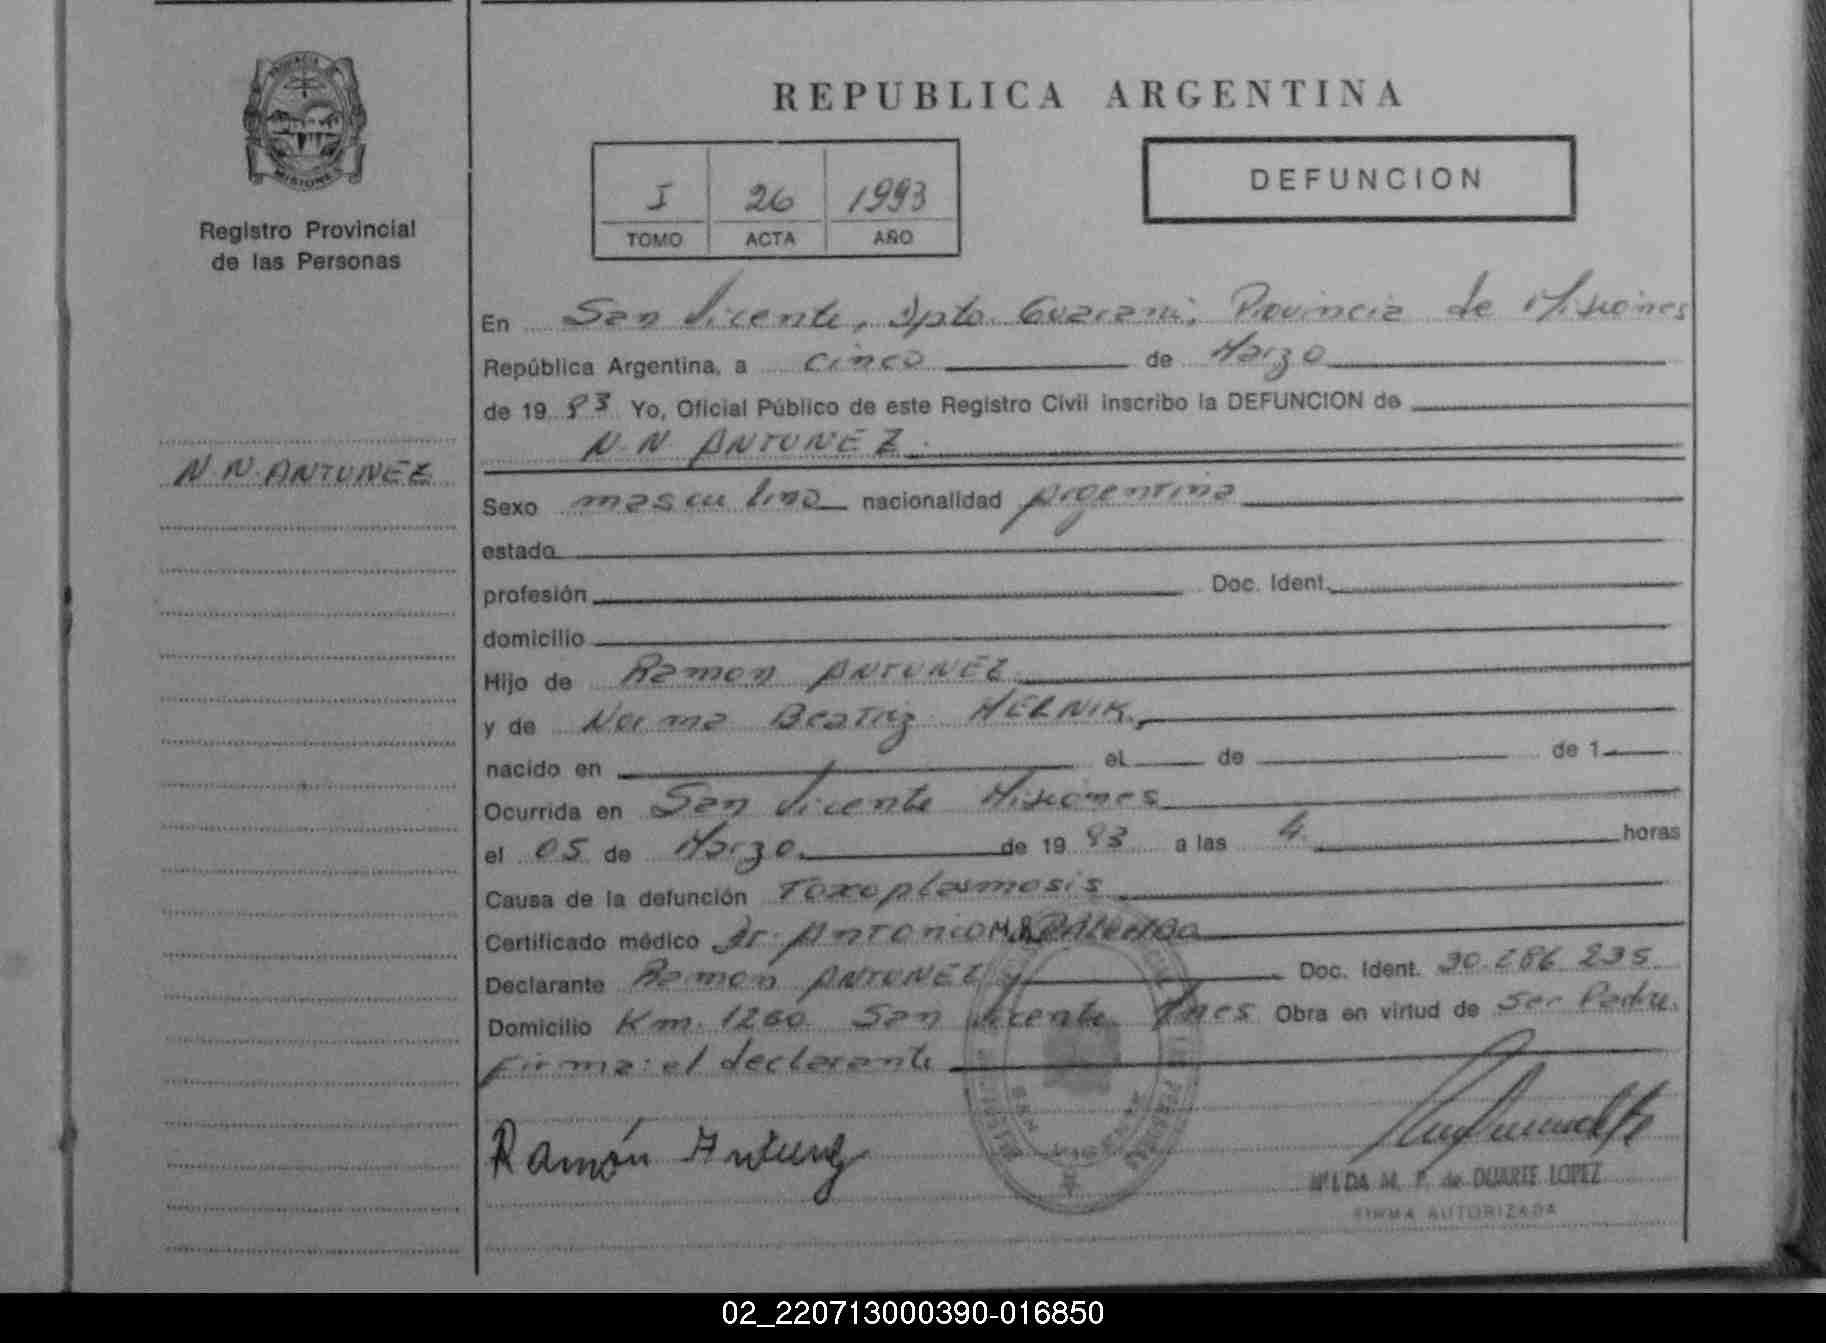 PROVINCIA DE
MISIONES
Registro Provincial
de las Personas
N.N. ANTUNEZ
REPUBLICA ARGENTINA
I 26 1993
TOMO ACTA AÑO
DEFUNCION
En San Vicente, Dpto. Guarani, Provincia de Misiones
República Argentina, a cinco de Marzo
de 19 93 Yo, Oficial Público de este Registro Civil inscribo la DEFUNCION de
N.N. ANTUNEZ.
Sexo masculino nacionalidad Argentina
estado
profesión Doc. Ident.
domicilio
Hijo de Ramon ANTUNEZ
y de Norma Beatriz HERNIK,
nacido en el de de 1
Ocurrida en San Vicente Misiones
el 05 de Marzo de 19 93 a las 4 horas
Causa de la defunción Toxoplasmosis
Certificado médico Dr. Antonio
Declarante Ramon ANTUNEZ Doc. Ident. 30.286.235
Domicilio Km. 1260 San Vicente Mnes Obra en virtud de ser Padre.
Firma: el declarante
Ramón Antunez
M. F. de DUARTE LOPEZ
FIRMA AUTORIZADA
02_220713000390-016850